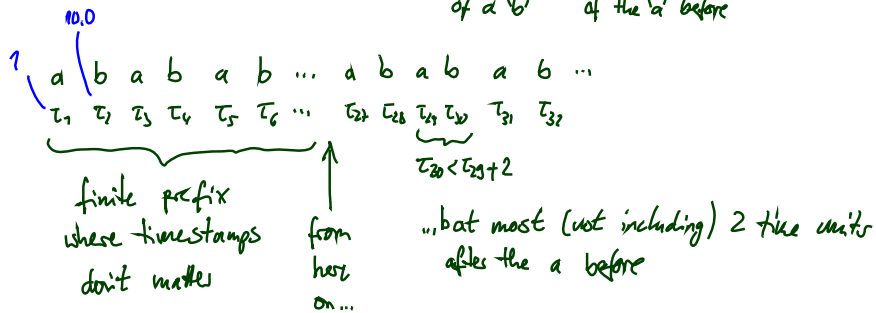 of a 'b' of the 'a' before
10.0
1
a b a b a b ... a b a b a b ...
τ₁ τ₂ τ₃ τ₄ τ₅ τ₆ ... τ₂₇ τ₂₈ τ₂₉ τ₃₀ τ₃₁ τ₃₂
τ₃₀ < τ₂₉ + 2
finite prefix
where timestamps
don't matter
from
here
on...
...b at most (not including) 2 time units
after the a before